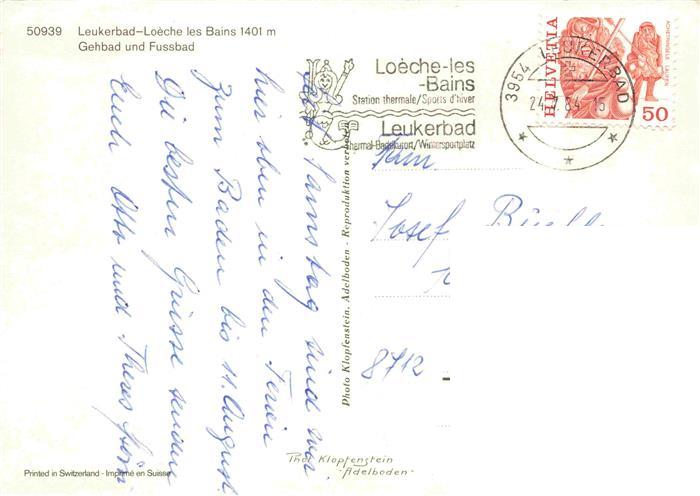 50939 Leukerbad–Loèche les Bains 1401 m
Gehbad und Fussbad
Loèche-les
-Bains
Station thermale/Sports d'hiver
Leukerbad
Thermal-Badekurort/Wintersportplatz
3954 LEUKERBAD
24.7.84-15
HELVETIA
50
Seit Samstag sind wir
hier oben in den Ferien
zum Baden bis 11. August.
Die besten Grüsse senden
Euch Otto und Theres
Fam.
Josef
8712
Photo Klopfenstein, Adelboden - Reproduktion verboten
Phot. Klopfenstein
- Adelboden -
Printed in Switzerland - Imprimé en Suisse